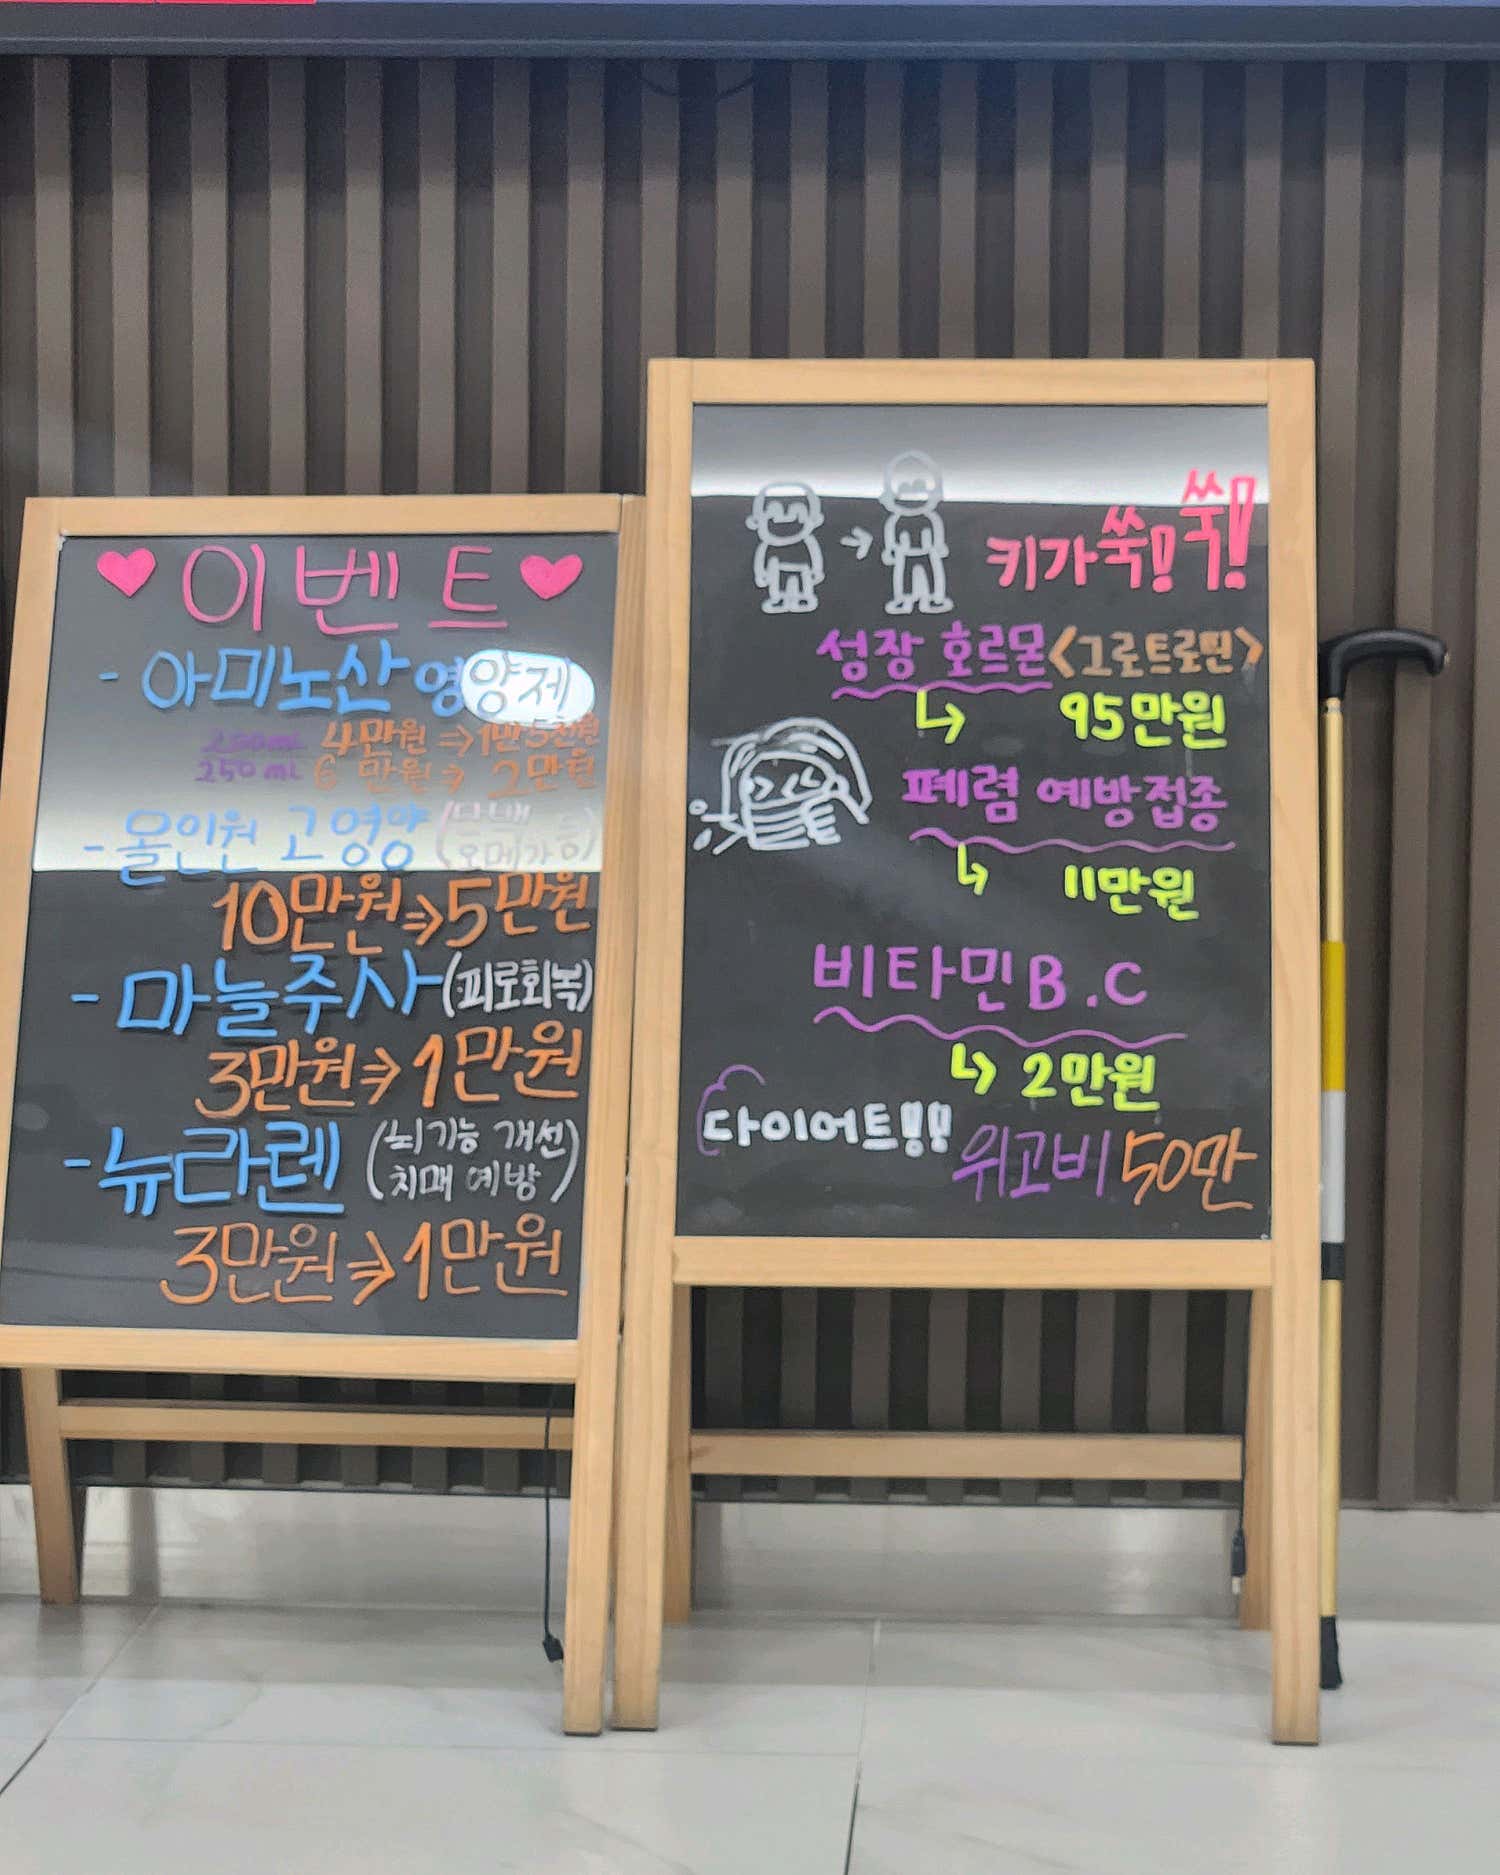 이벤트
- 아미노산 영양제
250ml 4만원 ⇒ 1만5천원
250ml 6만원 ⇒ 2만원
- 올인원 고영양 (단백
오메가)
10만원 ⇒ 5만원
- 마늘주사 (피로회복)
3만원 ⇒ 1만원
- 뉴라렌 (뇌기능 개선
치매 예방)
3만원 ⇒ 1만원
키가 쑥! 쑥!
성장 호르몬 <그로트로핀>
↳ 95만원
폐렴 예방접종
↳ 11만원
비타민 B.C
↳ 2만원
다이어트!!
위고비 50만